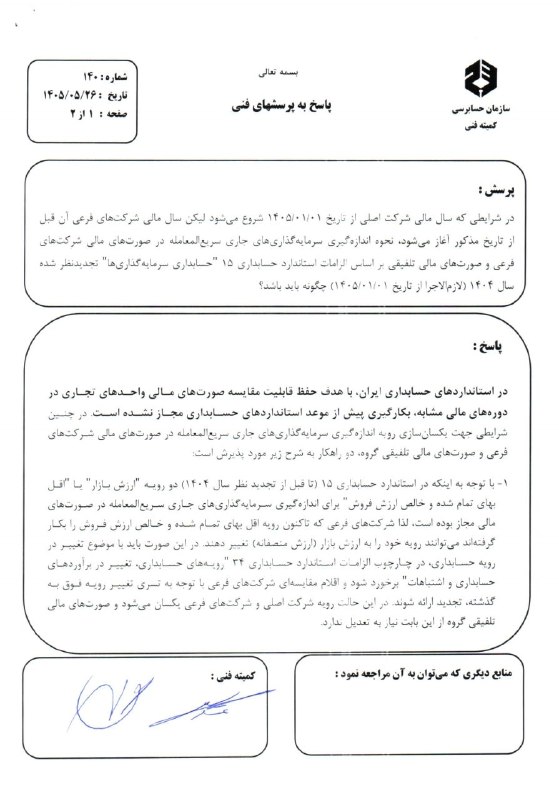 بسمه تعالی
پاسخ به پرسشهای فنی
سازمان حسابرسی
کمیته فنی
شماره : ۱۴۰
تاریخ : ۱۴۰۵/۰۵/۲۶
صفحه : ۱ از ۲
پرسش :
در شرایطی که سال مالی شرکت اصلی از تاریخ ۱۴۰۵/۰۱/۰۱ شروع می‌شود لیکن سال مالی شرکت‌های فرعی آن قبل
از تاریخ مذکور آغاز می‌شود، نحوه اندازه‌گیری سرمایه‌گذاری‌های جاری سریع‌المعامله در صورت‌های مالی شرکت‌های
فرعی و صورت‌های مالی تلفیقی بر اساس الزامات استاندارد حسابداری ۱۵ "حسابداری سرمایه‌گذاری‌ها" تجدیدنظر شده
سال ۱۴۰۴ (لازم‌الاجرا از تاریخ ۱۴۰۵/۰۱/۰۱) چگونه باید باشد؟
پاسخ :
در استانداردهای حسابداری ایران، با هدف حفظ قابلیت مقایسه صورت‌های مالی واحدهای تجاری در
دوره‌های مالی مشابه، بکارگیری پیش از موعد استانداردهای حسابداری مجاز نشده است. در چنین
شرایطی جهت یکسان‌سازی رویه اندازه‌گیری سرمایه‌گذاری‌های جاری سریع‌المعامله در صورت‌های مالی شرکت‌های
فرعی و صورت‌های مالی تلفیقی گروه، دو راهکار به شرح زیر مورد پذیرش است:
۱- با توجه به اینکه در استاندارد حسابداری ۱۵ (تا قبل از تجدید نظر سال ۱۴۰۴) دو رویه "ارزش بازار" یا "اقل
بهای تمام شده و خالص ارزش فروش" برای اندازه‌گیری سرمایه‌گذاری‌های جاری سریع‌المعامله در صورت‌های
مالی مجاز بوده است، لذا شرکت‌های فرعی که تاکنون رویه اقل بهای تمام شده و خالص ارزش فروش را بکار
گرفته‌اند می‌توانند رویه خود را به ارزش بازار (ارزش منصفانه) تغییر دهند. در این صورت باید با موضوع تغییر در
رویه حسابداری، در چارچوب الزامات استاندارد حسابداری ۳۴ "رویه‌های حسابداری، تغییر در برآوردهای
حسابداری و اشتباهات" برخورد شود و اقلام مقایسه‌ای شرکت‌های فرعی با توجه به تسری تغییر رویه فوق به
گذشته، تجدید ارائه شوند. در این حالت رویه شرکت اصلی و شرکت‌های فرعی یکسان می‌شود و صورت‌های مالی
تلفیقی گروه از این بابت نیاز به تعدیل ندارد.
منابع دیگری که می‌توان به آن مراجعه نمود :
کمیته فنی :